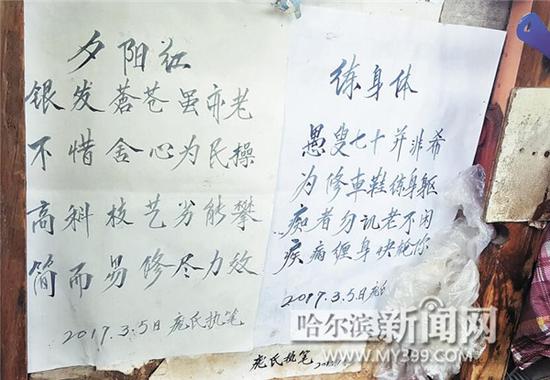 夕阳红
银发苍苍虽亦老
不惜舍心为民操
高科技艺劣能攀
简而易修尽力效
2017.3.5日庞氏执笔
练身体
愚叟七十并非希
为修车鞋练身躯
痴者勿讥老不闲
疾病缠身快枪你
2017.3.5日庞
庞氏执笔
哈尔滨新闻网
WWW.MY399.COM